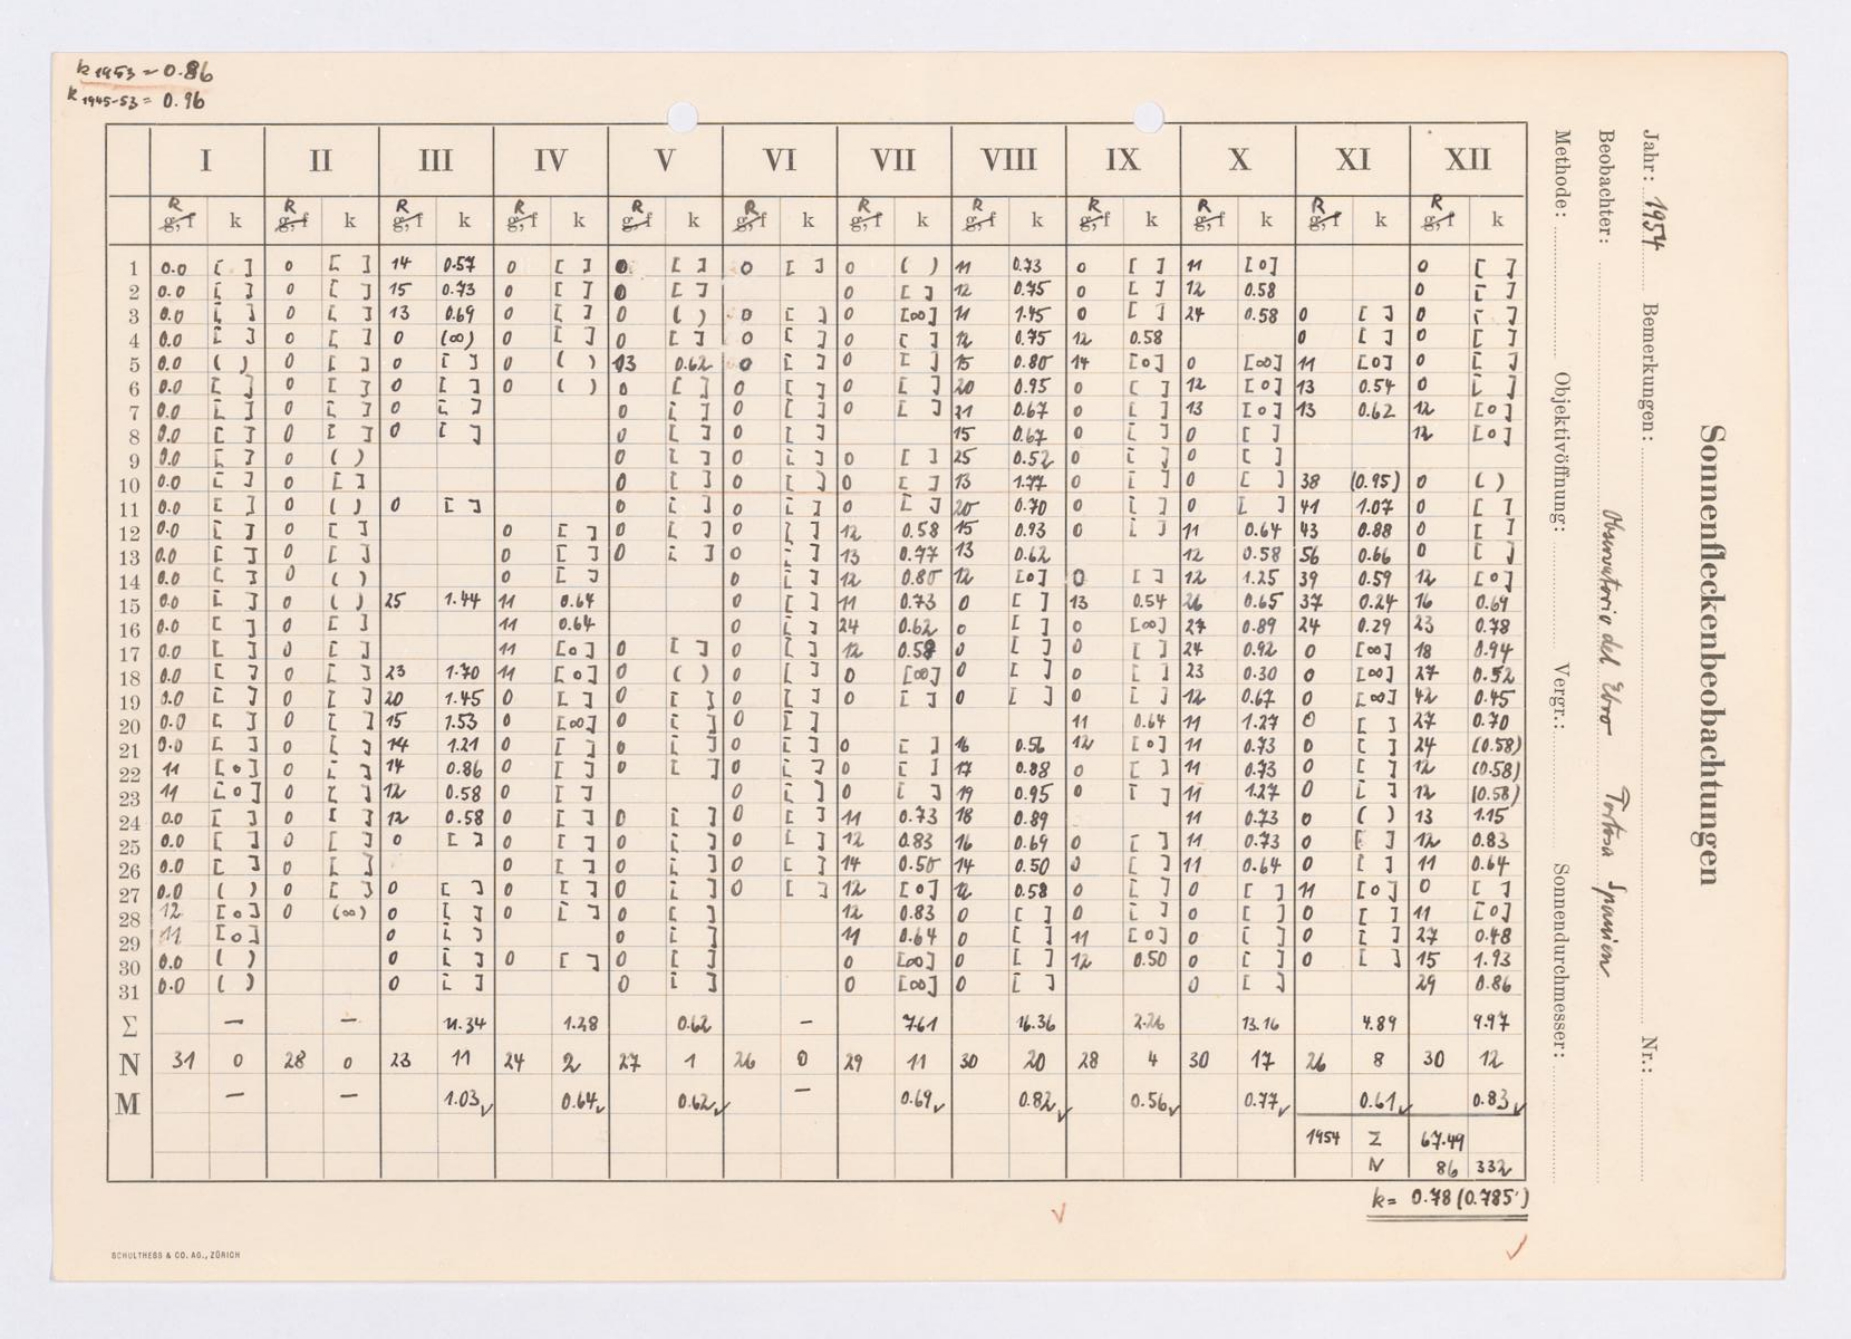 k 1953 = 0.86
k 1945-53 = 0.96
Sonnenfleckenbeobachtungen
Jahr: 1954 Bemerkungen: Nr.:
Beobachter: Observatorio del Ebro Tortosa Spanien
Methode: Objektivöffnung: Vergr.: Sonnendurchmesser:
I II III IV V VI VII VIII IX X XI XII
R R R R R R R R R R R R
g,f k g,f k g,f k g,f k g,f k g,f k g,f k g,f k g,f k g,f k g,f k g,f k
1 0.0 [ ] 0 [ ] 14 0.57 0 [ ] 0 [ ] 0 [ ] 0 ( ) 11 0.73 0 [ ] 11 [0] 0 [ ]
2 0.0 [ ] 0 [ ] 15 0.73 0 [ ] 0 [ ] 0 [ ] 12 0.75 0 [ ] 12 0.58 0 [ ]
3 0.0 [ ] 0 [ ] 13 0.69 0 [ ] 0 ( ) 0 [ ] 0 [∞] 11 1.45 0 [ ] 24 0.58 0 [ ] 0 [ ]
4 0.0 [ ] 0 [ ] 0 (∞) 0 [ ] 0 [ ] 0 [ ] 0 [ ] 12 0.75 12 0.58 0 [ ] 0 [ ]
5 0.0 ( ) 0 [ ] 0 [ ] 0 ( ) 13 0.62 0 [ ] 0 [ ] 15 0.80 14 [0] 0 [∞] 11 [0] 0 [ ]
6 0.0 [ ] 0 [ ] 0 [ ] 0 ( ) 0 [ ] 0 [ ] 0 [ ] 20 0.95 0 [ ] 12 [0] 13 0.54 0 [ ]
7 0.0 [ ] 0 [ ] 0 [ ] 0 [ ] 0 [ ] 0 [ ] 21 0.67 0 [ ] 13 [0] 13 0.62 12 [0]
8 0.0 [ ] 0 [ ] 0 [ ] 0 [ ] 0 [ ] 15 0.67 0 [ ] 0 [ ] 12 [0]
9 0.0 [ ] 0 ( ) 0 [ ] 0 [ ] 0 [ ] 25 0.52 0 [ ] 0 [ ]
10 0.0 [ ] 0 [ ] 0 [ ] 0 [ ] 0 [ ] 13 1.77 0 [ ] 0 [ ] 38 (0.95) 0 ( )
11 0.0 [ ] 0 ( ) 0 [ ] 0 [ ] 0 [ ] 0 [ ] 20 0.70 0 [ ] 0 [ ] 41 1.07 0 [ ]
12 0.0 [ ] 0 [ ] 0 [ ] 0 [ ] 0 [ ] 12 0.58 15 0.93 0 [ ] 11 0.64 43 0.88 0 [ ]
13 0.0 [ ] 0 [ ] 0 [ ] 0 [ ] 0 [ ] 13 0.77 13 0.62 12 0.58 56 0.66 0 [ ]
14 0.0 [ ] 0 ( ) 0 [ ] 0 [ ] 12 0.80 12 [0] 0 [ ] 12 1.25 39 0.59 12 [0]
15 0.0 [ ] 0 ( ) 25 1.44 11 0.64 0 [ ] 11 0.73 0 [ ] 13 0.54 26 0.65 37 0.24 16 0.69
16 0.0 [ ] 0 [ ] 11 0.64 0 [ ] 24 0.62 0 [ ] 0 [∞] 27 0.89 24 0.29 23 0.78
17 0.0 [ ] 0 [ ] 11 [0] 0 [ ] 0 [ ] 12 0.58 0 [ ] 0 [ ] 24 0.92 0 [∞] 18 0.94
18 0.0 [ ] 0 [ ] 23 1.70 11 [0] 0 ( ) 0 [ ] 0 [∞] 0 [ ] 0 [ ] 23 0.30 0 [∞] 27 0.52
19 0.0 [ ] 0 [ ] 20 1.45 0 [ ] 0 [ ] 0 [ ] 0 [ ] 0 [ ] 0 [ ] 12 0.67 0 [∞] 42 0.45
20 0.0 [ ] 0 [ ] 15 1.53 0 [∞] 0 [ ] 0 [ ] 11 0.64 11 1.27 0 [ ] 27 0.70
21 0.0 [ ] 0 [ ] 14 1.21 0 [ ] 0 [ ] 0 [ ] 0 [ ] 16 0.56 12 [0] 11 0.73 0 [ ] 24 (0.58)
22 11 [0] 0 [ ] 14 0.86 0 [ ] 0 [ ] 0 [ ] 0 [ ] 17 0.88 0 [ ] 11 0.73 0 [ ] 12 (0.58)
23 11 [0] 0 [ ] 12 0.58 0 [ ] 0 [ ] 0 [ ] 19 0.95 0 [ ] 11 1.27 0 [ ] 12 (0.58)
24 0.0 [ ] 0 [ ] 12 0.58 0 [ ] 0 [ ] 0 [ ] 11 0.73 18 0.89 11 0.73 0 ( ) 13 1.15
25 0.0 [ ] 0 [ ] 0 [ ] 0 [ ] 0 [ ] 0 [ ] 12 0.83 16 0.69 0 [ ] 11 0.73 0 [ ] 12 0.83
26 0.0 [ ] 0 [ ] 0 [ ] 0 [ ] 0 [ ] 14 0.50 14 0.50 0 [ ] 11 0.64 0 [ ] 11 0.64
27 0.0 ( ) 0 [ ] 0 [ ] 0 [ ] 0 [ ] 0 [ ] 12 [0] 12 0.58 0 [ ] 0 [ ] 11 [0] 0 [ ]
28 12 [0] 0 (∞) 0 [ ] 0 [ ] 0 [ ] 12 0.83 0 [ ] 0 [ ] 0 [ ] 0 [ ] 11 [0]
29 11 [0] 0 [ ] 0 [ ] 11 0.64 0 [ ] 11 [0] 0 [ ] 0 [ ] 27 0.48
30 0.0 ( ) 0 [ ] 0 [ ] 0 [ ] 0 [∞] 0 [ ] 12 0.50 0 [ ] 0 [ ] 15 1.93
31 0.0 ( ) 0 [ ] 0 [ ] 0 [∞] 0 [ ] 0 [ ] 29 0.86
Σ — — 11.34 1.28 0.62 — 7.61 16.36 2.26 13.16 4.89 9.97
N 31 0 28 0 23 11 24 2 27 1 26 0 29 11 30 20 28 4 30 17 26 8 30 12
M — — 1.03 0.64 0.62 — 0.69 0.82 0.56 0.77 0.61 0.83
1954 Σ 67.49
N 86 332
k = 0.78 (0.785)
SCHULTHESS & CO. AG., ZÜRICH